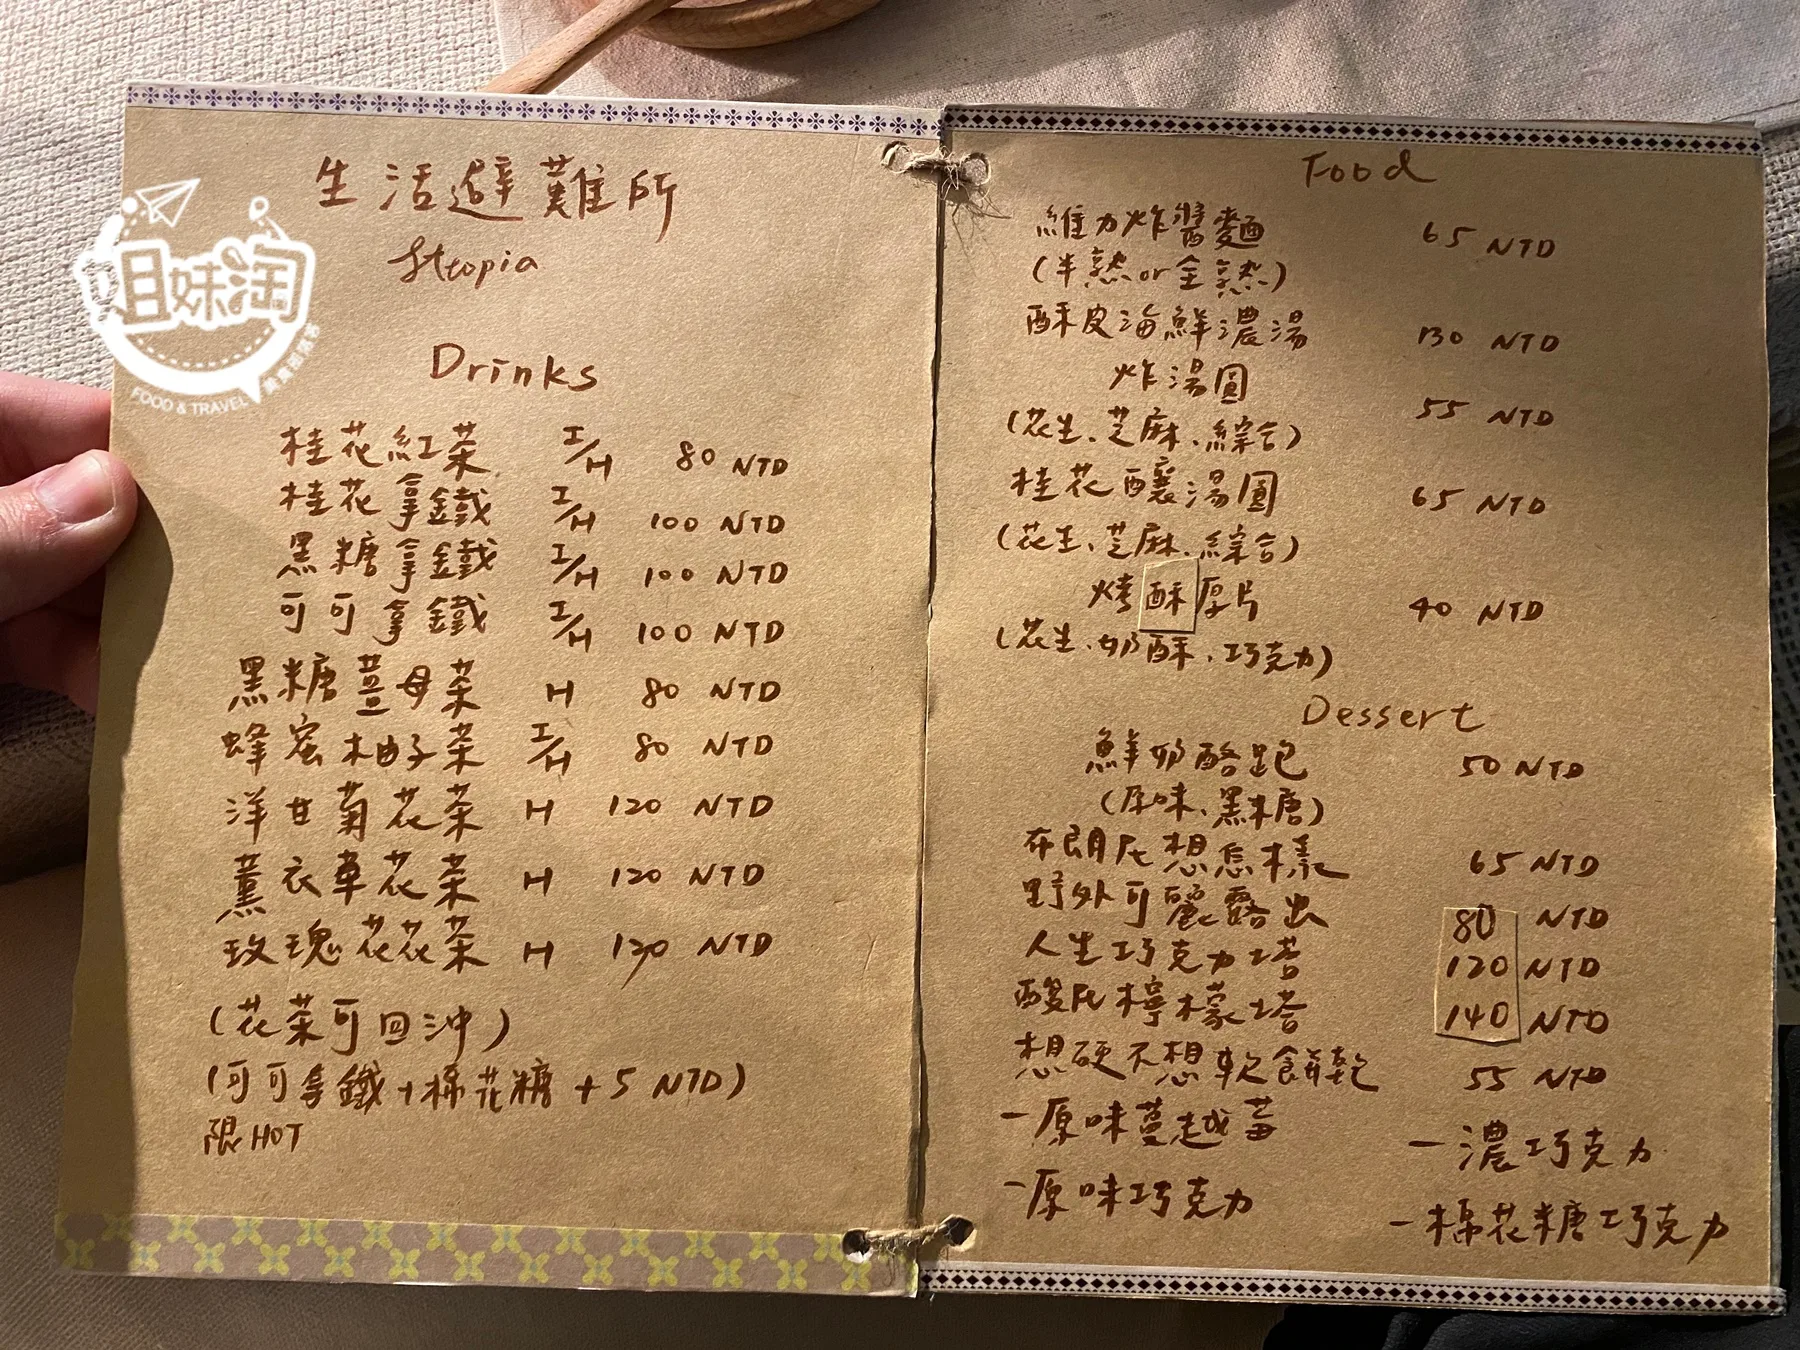 生活避難所
Drinks
桂花紅茶 I/H 80 NTD
桂花拿鐵 I/H 100 NTD
黑糖拿鐵 I/H 100 NTD
可可拿鐵 I/H 100 NTD
黑糖薑母茶 H 80 NTD
蜂蜜柚子茶 I/H 80 NTD
洋甘菊花茶 H 120 NTD
薰衣草花茶 H 120 NTD
玫瑰花花茶 H 120 NTD
(花茶可回沖)
(可可拿鐵+棉花糖+5 NTD)
限HOT
Food
維力炸醬麵 65 NTD
(半熟or全熟)
酥皮海鮮濃湯 130 NTD
炸湯圓 55 NTD
(花生、芝麻、綜合)
桂花釀湯圓 65 NTD
(花生、芝麻、綜合)
烤酥厚片 40 NTD
(花生、奶酥、巧克力)
Dessert
鮮奶酪跑 50 NTD
(原味、黑糖)
布朗尼想怎樣 65 NTD
野外可麗露出 80 NTD
人生巧克力塔 120 NTD
酸尼檸檬塔 140 NTD
想硬不想軟餅乾 55 NTD
-原味蔓越莓
-濃巧克力
-原味巧克力
-棉花糖巧克力
姐妹淘
FOOD & TRAVEL